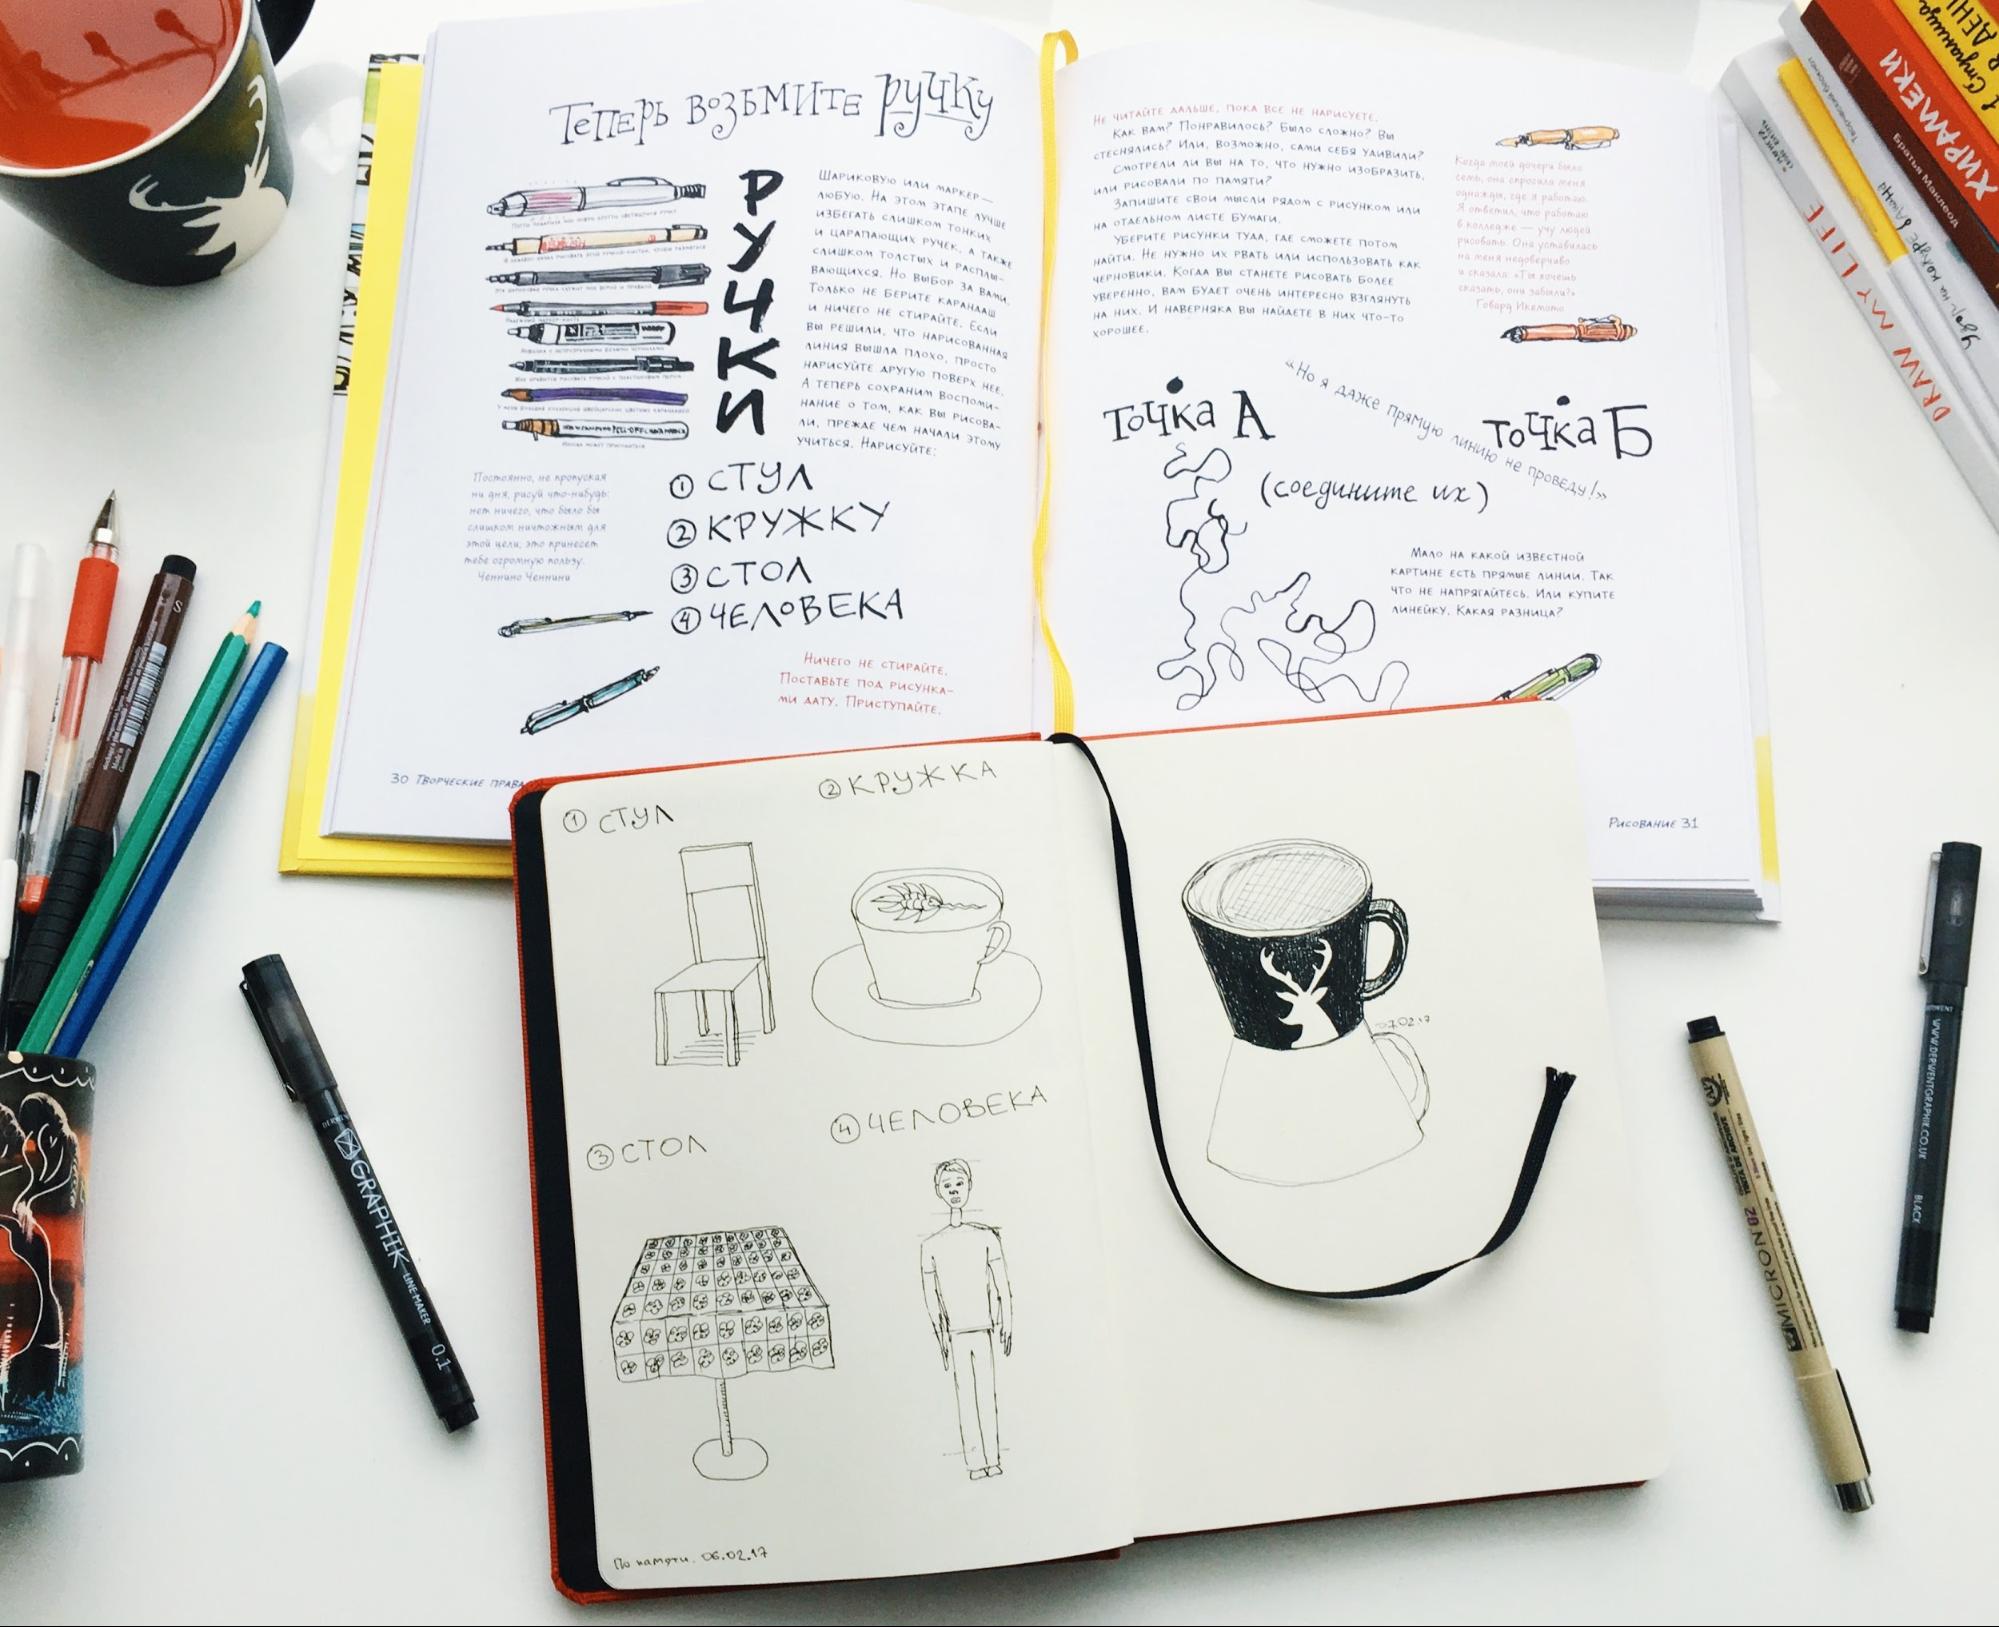 Теперь возьмите ручку
РУЧКИ
Шариковую или маркер —
любую. На этом этапе лучше
избегать слишком тонких
и царапающих ручек, а также
слишком толстых и расплы-
вающихся. Но выбор за вами.
Только не берите карандаш
и ничего не стирайте. Если
вы решили, что нарисованная
линия вышла плохо, просто
нарисуйте другую поверх нее.
А теперь сохраним воспоми-
нание о том, как вы рисова-
ли, прежде чем начали этому
учиться. Нарисуйте:
Постоянно, не пропуская
ни дня, рисуй что-нибудь:
нет ничего, что было бы
слишком ничтожным для
этой цели; это принесет
тебе огромную пользу.
Ченнино Ченнини
① СТУЛ
② КРУЖКУ
③ СТОЛ
④ ЧЕЛОВЕКА
Ничего не стирайте.
Поставьте под рисунка-
ми дату. Приступайте.
30 Творческие права
Не читайте дальше, пока все не нарисуете.
Как вам? Понравилось? Было сложно? Вы
стеснялись? Или, возможно, сами себя удивили?
Смотрели ли вы на то, что нужно изобразить,
или рисовали по памяти?
Запишите свои мысли рядом с рисунком или
на отдельном листе бумаги.
Уберите рисунки туда, где сможете потом
найти. Не нужно их рвать или использовать как
черновики. Когда вы станете рисовать более
уверенно, вам будет очень интересно взглянуть
на них. И наверняка вы найдете в них что-то
хорошее.
Когда моей дочери было
семь, она спросила меня
однажды, где я работаю.
Я ответил, что работаю
в колледже — учу людей
рисовать. Она уставилась
на меня недоверчиво
и сказала: «Ты хочешь
сказать, они забыли?»
Говард Икемото
«Но я даже прямую линию не проведу!»
Точка А
Точка Б
(соедините их)
Мало на какой известной
картине есть прямые линии. Так
что не напрягайтесь. Или купите
линейку. Какая разница?
Рисование 31
① СТУЛ
② КРУЖКА
③ СТОЛ
④ ЧЕЛОВЕКА
По памяти. 06.02.17
07.02.17
DRAW MY LIFE
ХИРАМЕКИ
Братья Маклеод
1 Страница
в день
S
Made in
Germany
DERWENT
GRAPHIK
LINE-MAKER
0.1
MICRON
02
DERWENT
WWW.DERWENTGRAPHIK.CO.UK
BLACK